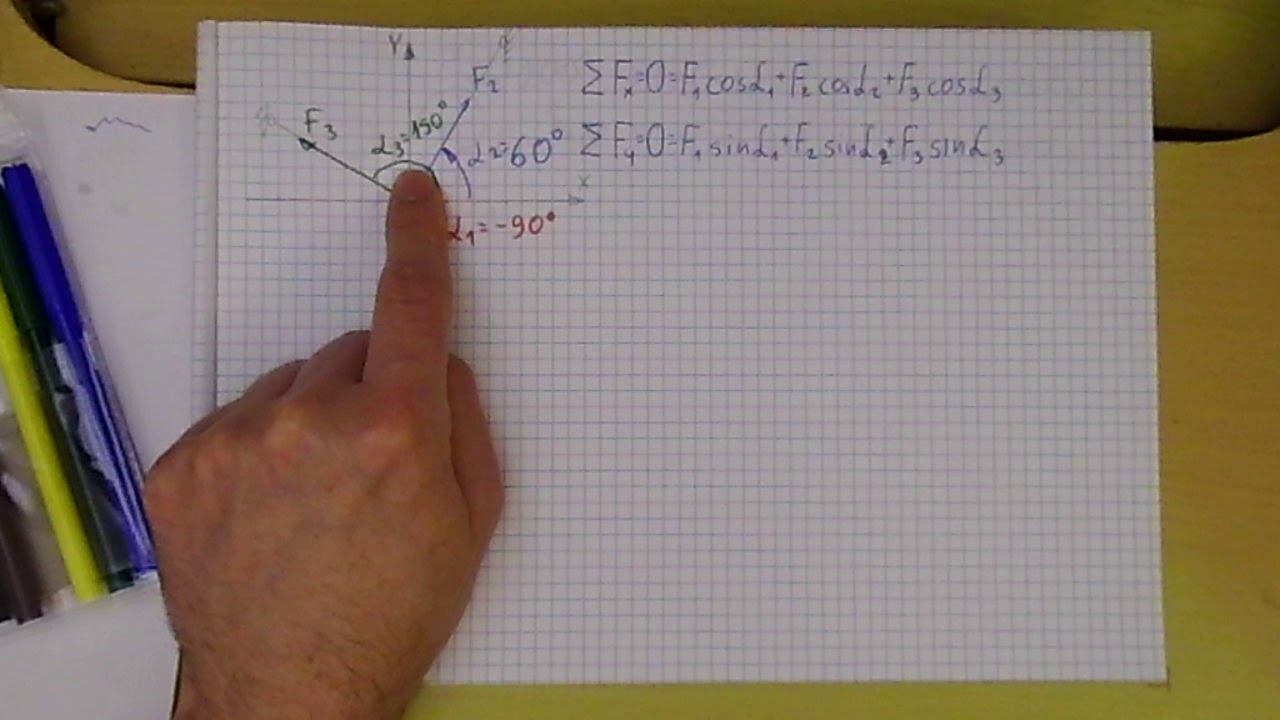 Y
F₂
F₃
α₃=150°
α₂=60°
x
α₁=-90°
ΣFₓ=0=F₁cosα₁+F₂cosα₂+F₃cosα₃
ΣFᵧ=0=F₁sinα₁+F₂sinα₂+F₃sinα₃